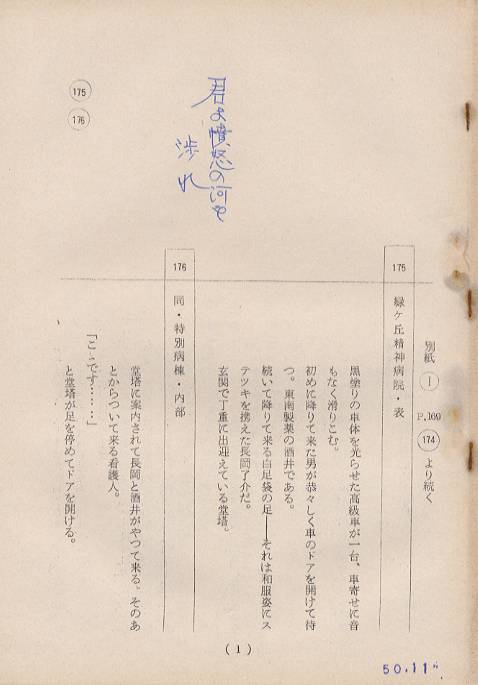 別紙 Ⅰ P.169 174 より続く
175 緑ケ丘精神病院・表
黒塗りの車体を光らせた高級車が一台、車寄せに音
もなく滑りこむ。
初めに降りて来た男が恭々しく車のドアを開けて待
つ。東南製薬の酒井である。
続いて降りて来る白足袋の足――それは和服姿にス
テツキを携えた長岡了介だ。
玄関で丁重に出迎えている堂塔。
176 同・特別病棟・内部
堂塔に案内されて長岡と酒井がやつて来る。そのあ
とからついて来る看護人。
「こゝです……」
と堂塔が足を停めてドアを開ける。
君よ憤怒の河を
渉れ
175
176
(1)
50.11